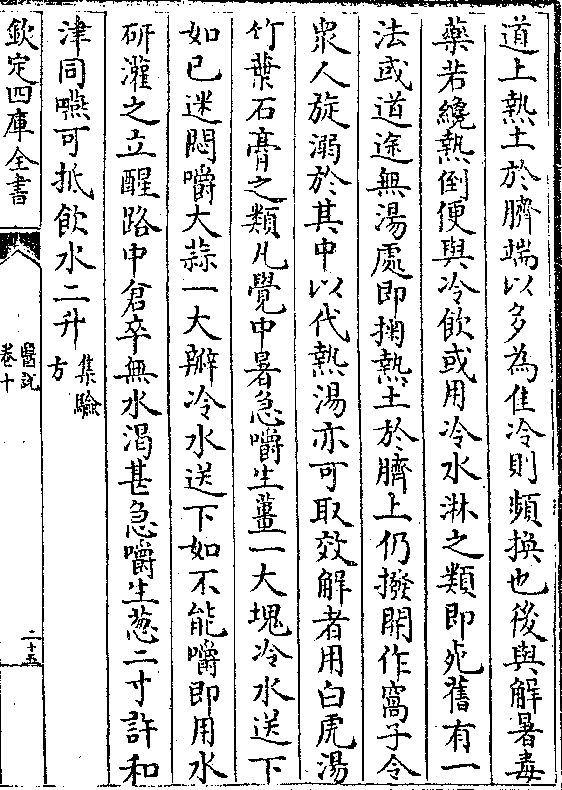 道上熱土於臍端以多為佳冷則頻換也後與解暑毒
藥若纔熱倒便與冷飲或用冷水淋之類即死舊有一
法或道途無湯處即掬熱土於臍上仍撥開作窩子令
衆人旋溺於其中以代熱湯亦可取效解者用白虎湯
竹葉石膏之類凡覺中暑急嚼生薑一大塊冷水送下
如已迷悶嚼大蒜一大瓣冷水送下如不能嚼即用水
研灌之立醒路中倉卒無水渴甚急嚼生葱二寸許和
津同嚥可抵飲水二升集驗方
欽定四庫全書
醫說
卷十
二十五